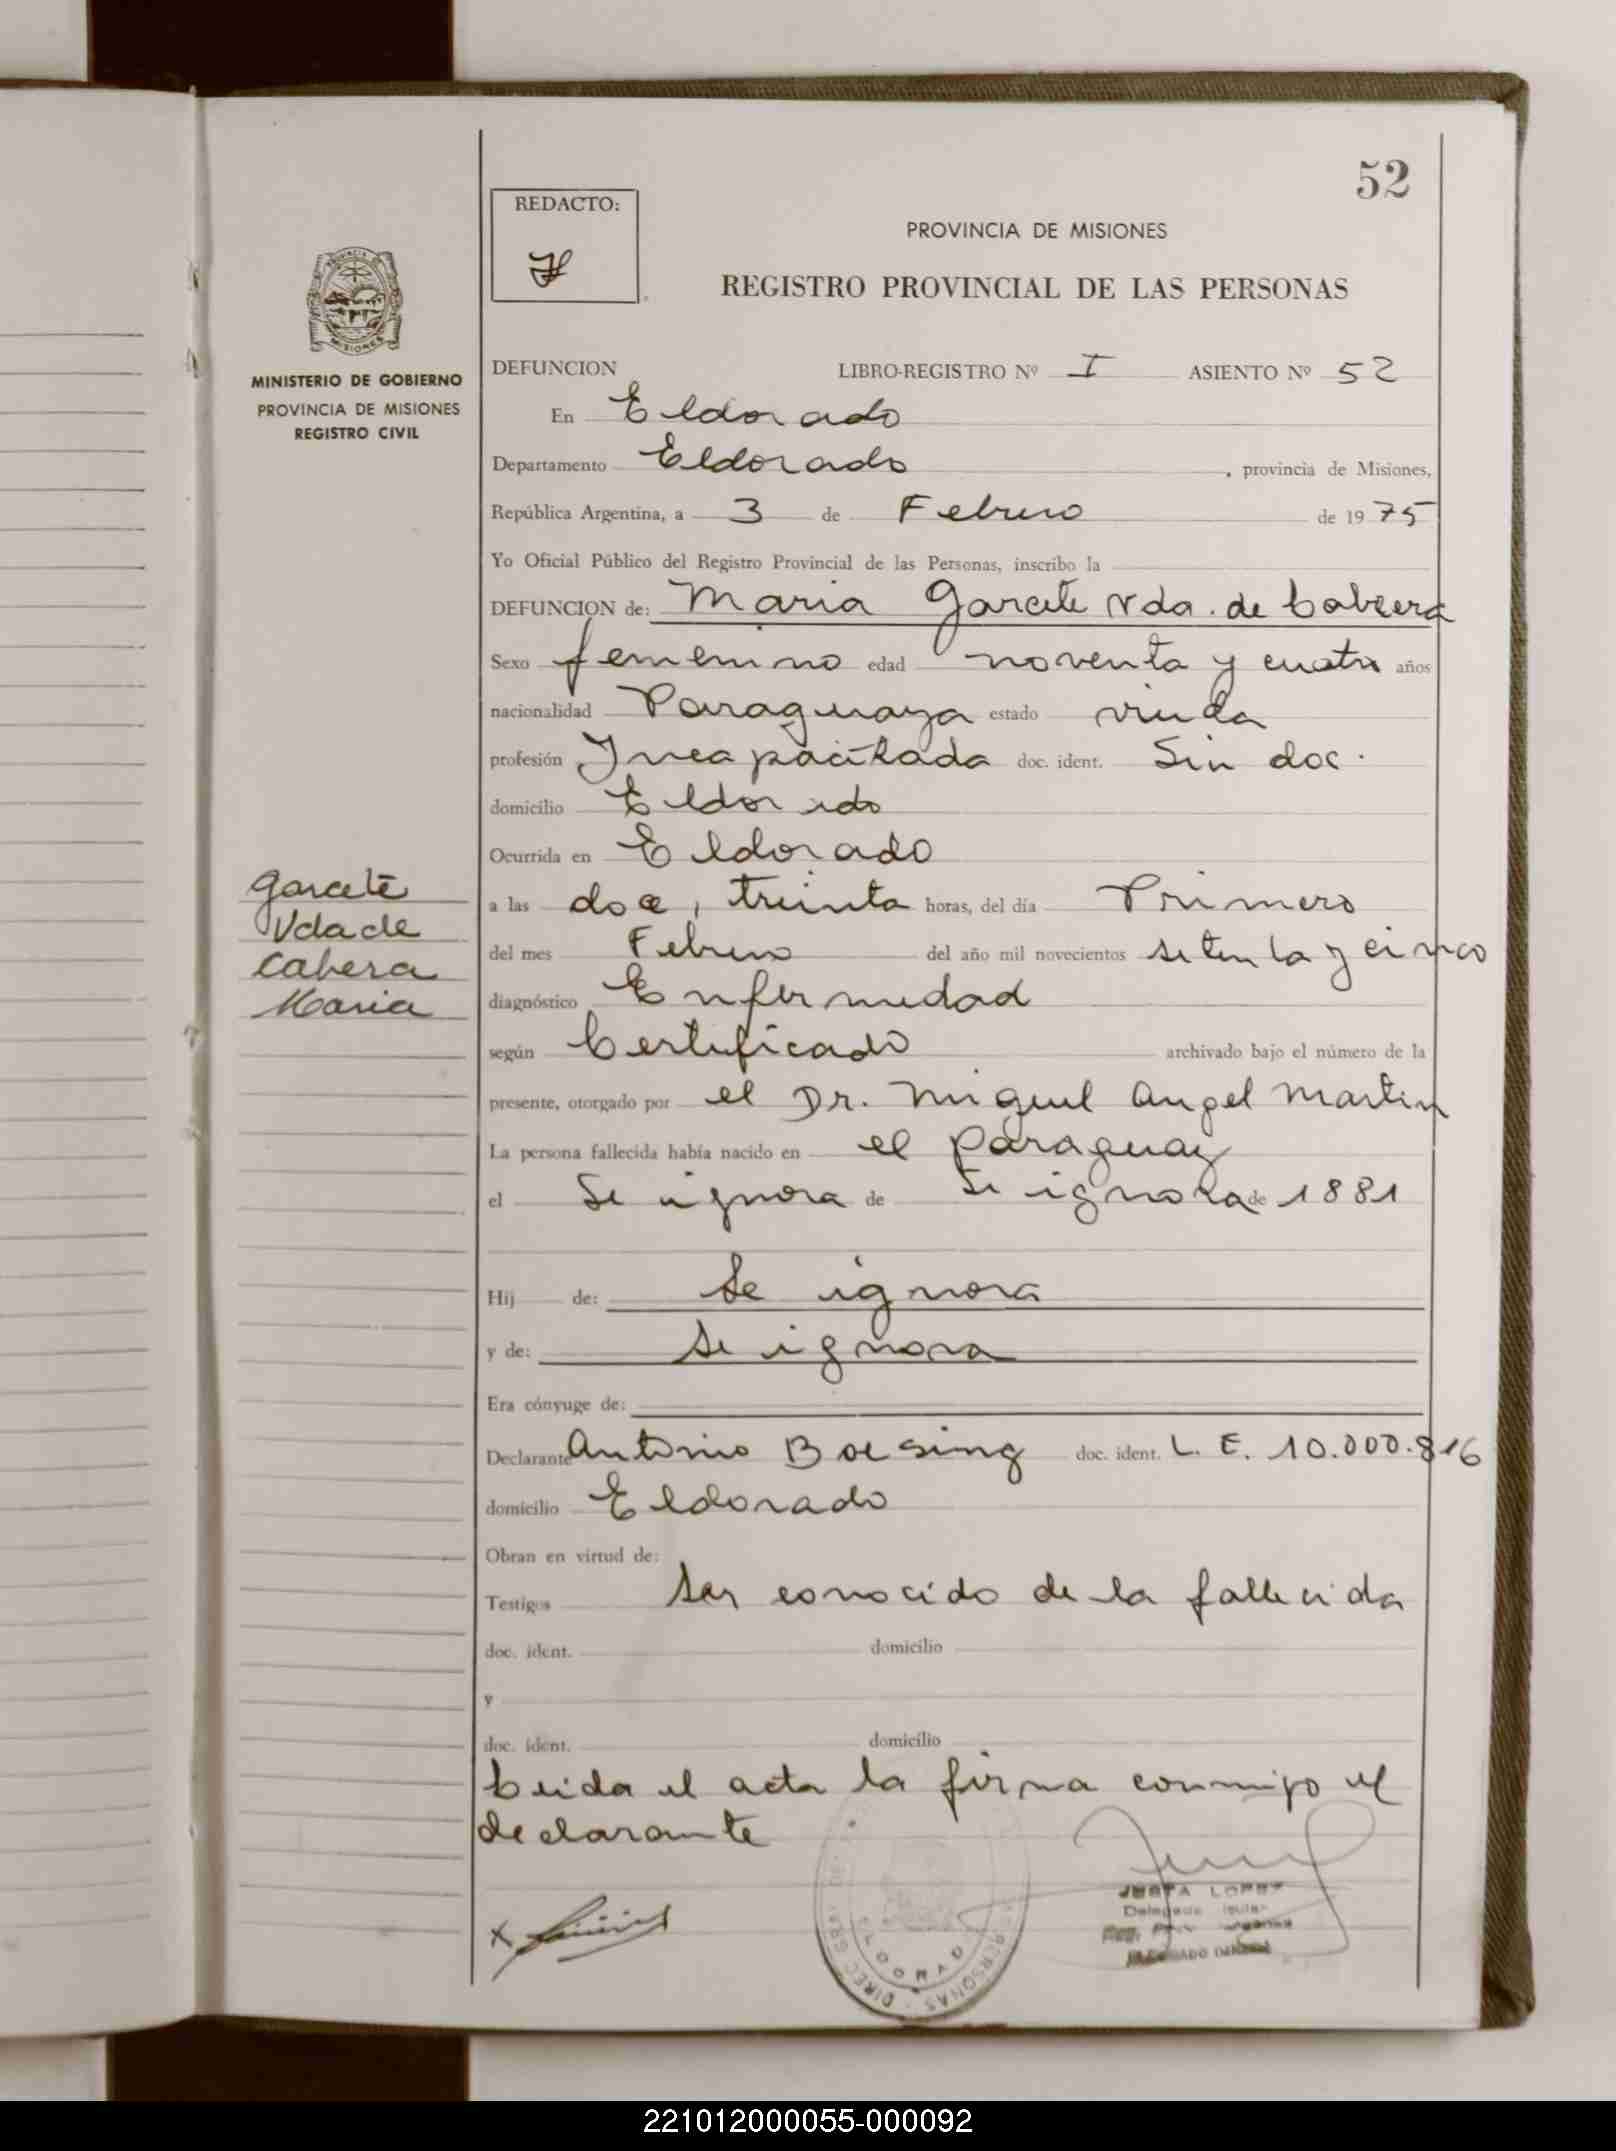 52
REDACTO:
PROVINCIA DE MISIONES
REGISTRO PROVINCIAL DE LAS PERSONAS
MISIONES
MINISTERIO DE GOBIERNO
PROVINCIA DE MISIONES
REGISTRO CIVIL
DEFUNCION LIBRO-REGISTRO Nº I ASIENTO Nº 52
En Eldorado
Departamento Eldorado, provincia de Misiones,
República Argentina, a 3 de Febrero de 1975
Yo Oficial Público del Registro Provincial de las Personas, inscribo la
DEFUNCION de: Maria Garcete Vda. de Cabrera
Sexo femenino edad noventa y cuatro años
nacionalidad Paraguaya estado viuda
profesión Incapacitada doc. ident. Sin doc.
domicilio Eldorado
Ocurrida en Eldorado
a las doce, treinta horas, del día Primero
del mes Febrero del año mil novecientos setenta y cinco
diagnóstico Enfermedad
según Certificado archivado bajo el número de la
presente, otorgado por el Dr. Miguel Angel Martin
La persona fallecida había nacido en el Paraguay
el Se ignora de Se ignora de 1881
Hij de: Se ignora
y de: Se ignora
Era cónyuge de:
Declarante Antonio Boesing doc. ident. L. E. 10.000.816
domicilio Eldorado
Obran en virtud de:
Testigos Ser conocido de la fallecida
doc. ident. domicilio
y
doc. ident. domicilio
Leida el acta la firma conmigo el
declarante
Garcete
Vda de
Cabera
Maria
X
ELDORADO
JUSTA LOPEZ
221012000055-000092